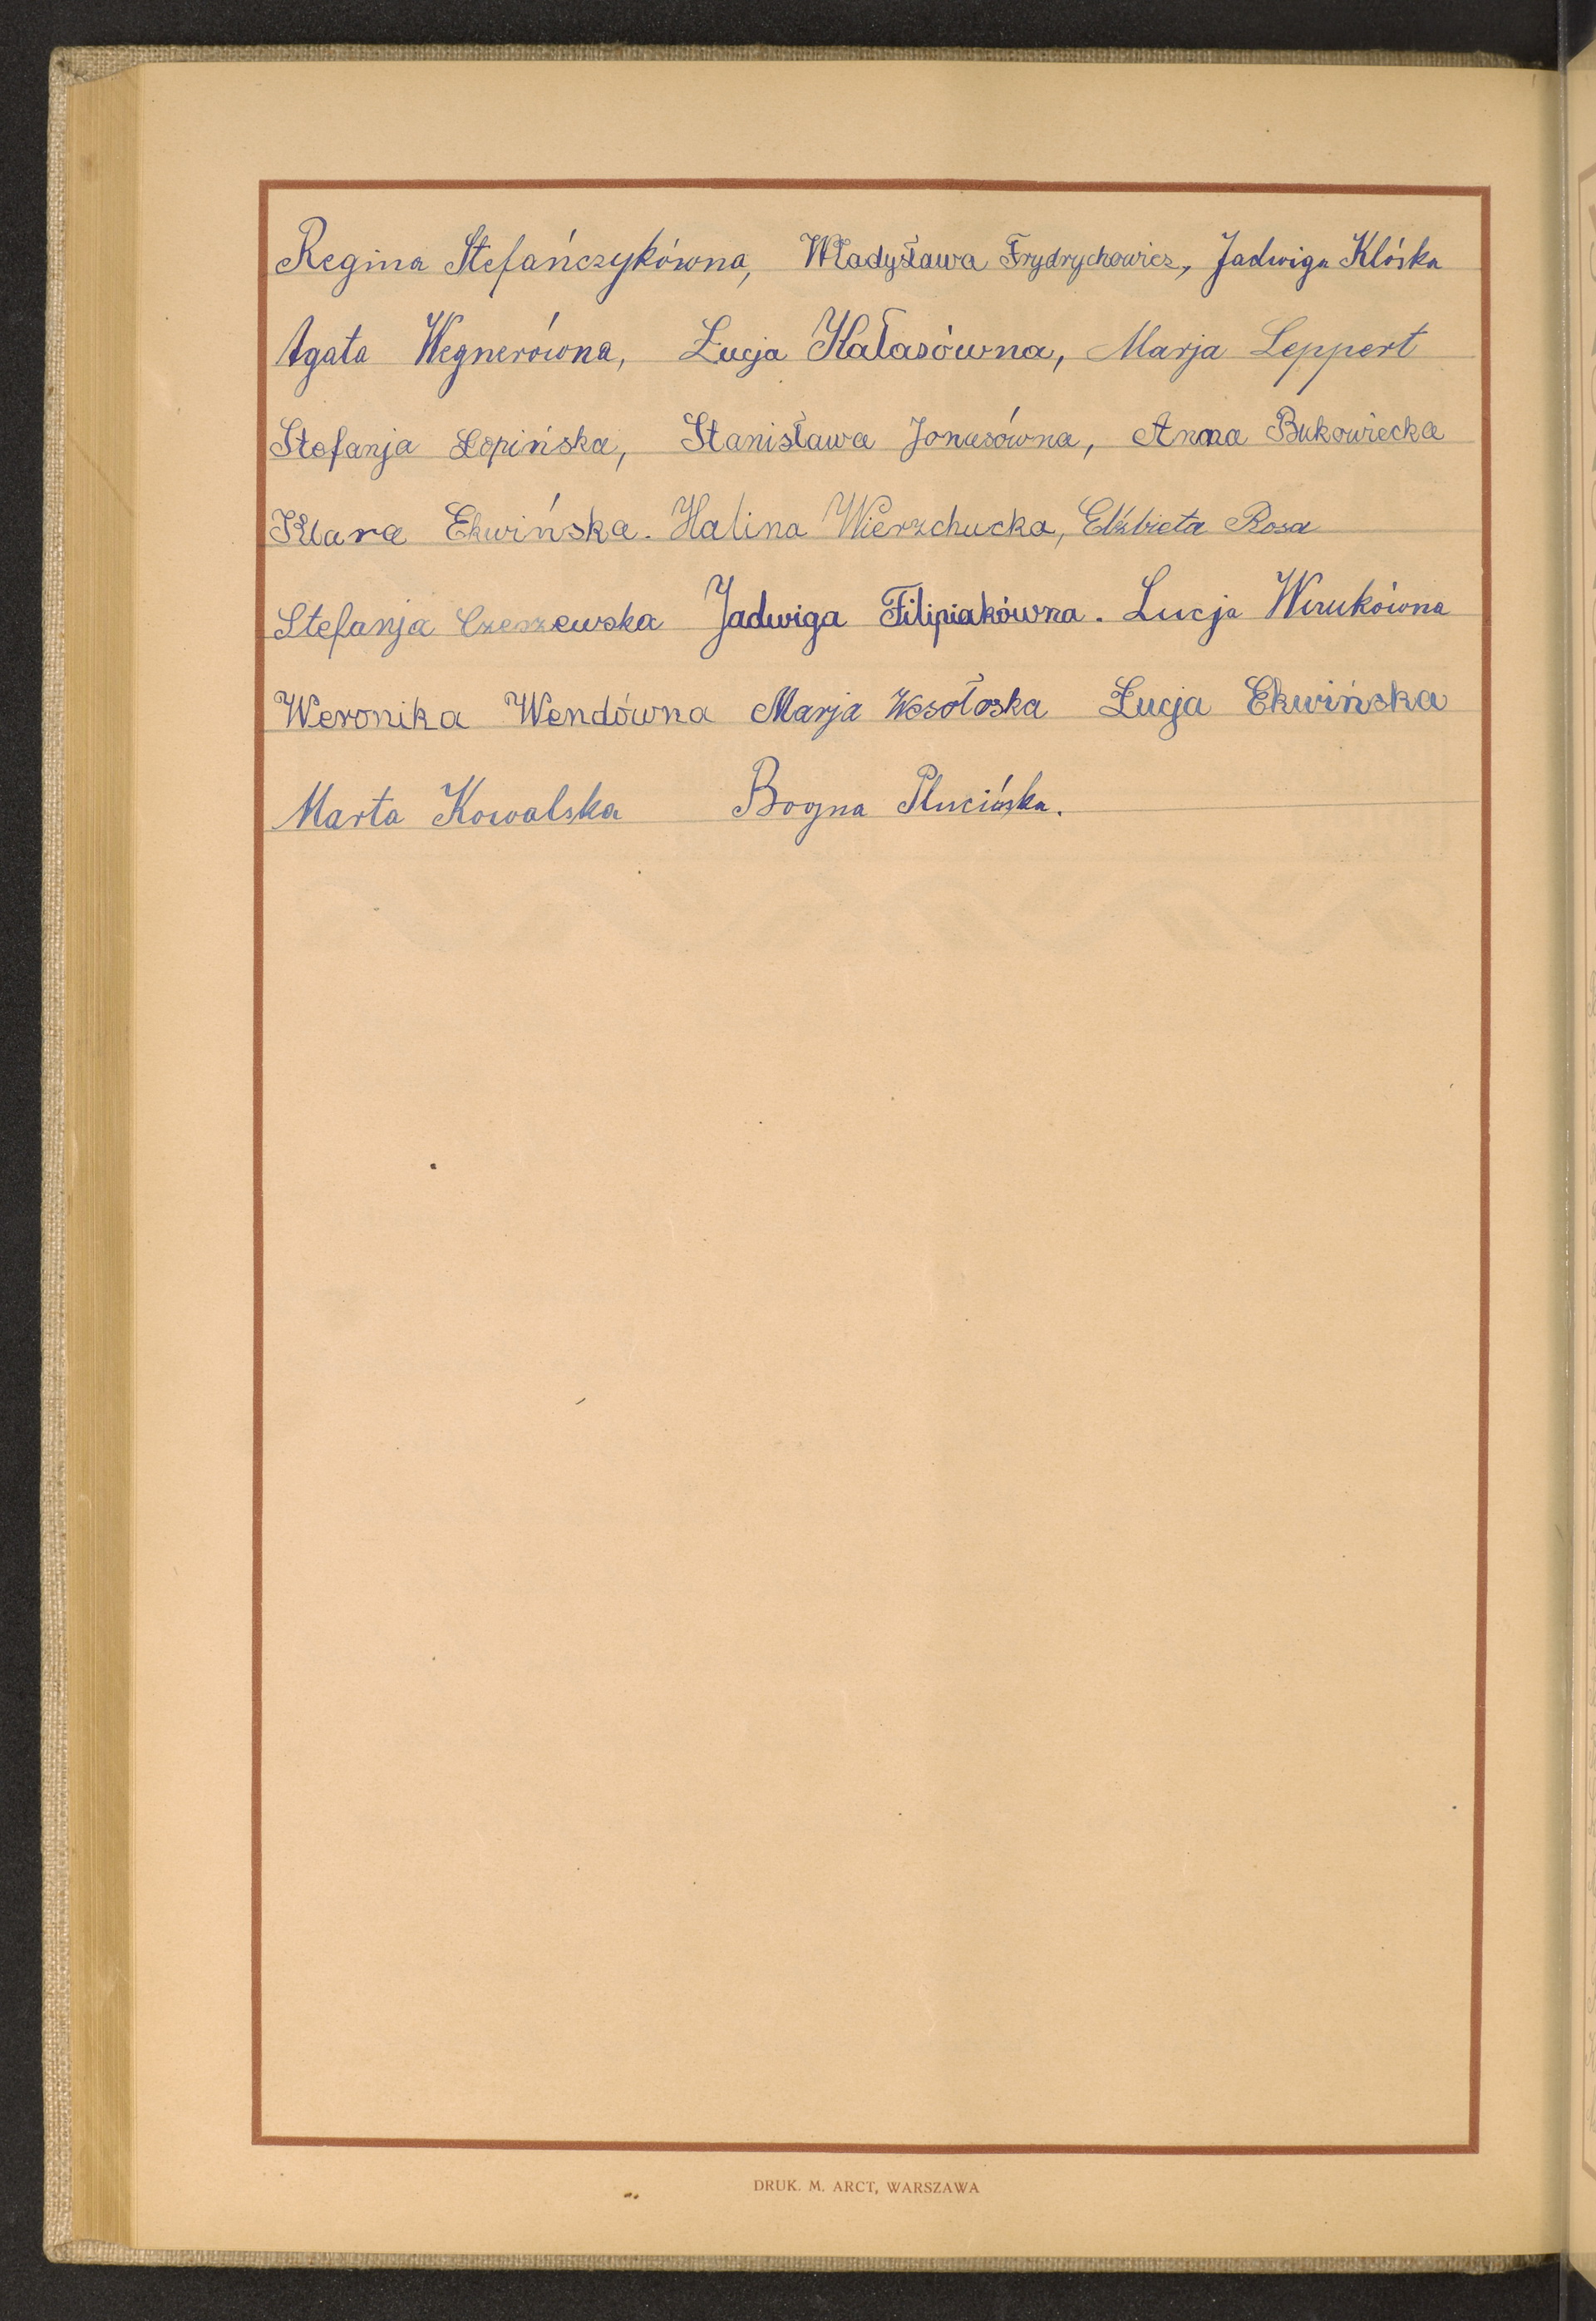 Regina Stefańczykówna, Władysława Frydrychowicz, Jadwiga Klóska
Agata Wegnerówna, Łucja Hałasówna, Marja Leppert
Stefanja Łopińska, Stanisława Jonasówna, Anna Bukowiecka
Klara Ekwińska. Halina Wierzchucka, Elżbieta Rosa
Stefanja Czeszewska Jadwiga Filipiakówna. Lucja
Weronika Wendówna Marja Wesołoska Łucja Ekwińska
Marta Kowalska Bogna Plucińska.
DRUK. M. ARCT, WARSZAWA